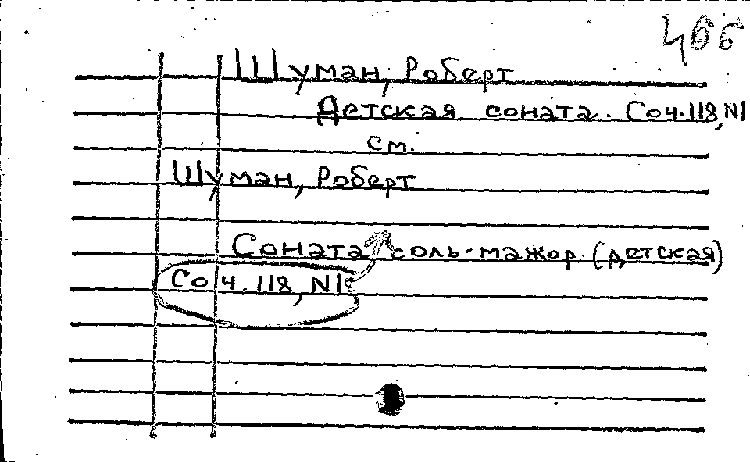 466
Шуман, Роберт
Детская соната. Соч.118, N1
см.
Шуман, Роберт
Соната соль-мажор (детская)
Соч.118, N1